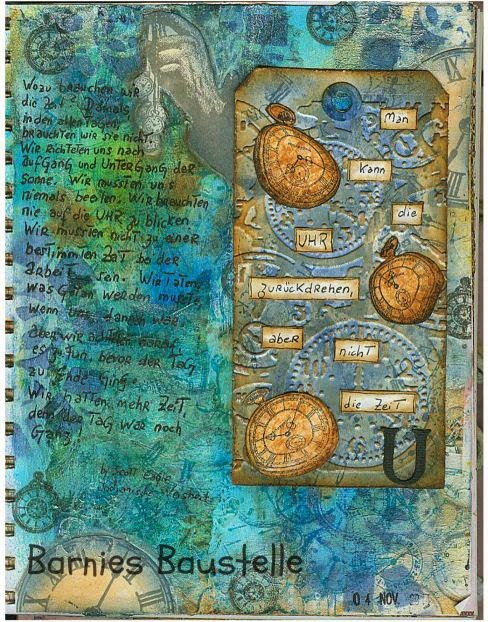 Wozu brauchen wir
die Zeit? Damals
in den alten Tagen
brauchten wir sie nicht.
Wir richteten uns nach
Aufgang und Untergang der
Sonne. Wir mussten uns
niemals beeilen. Wir brauchten
nie auf die UHR zu blicken.
Wir mussten nicht zu einer
bestimmten Zeit bei der
Arbeit sein. Wir taten,
was getan werden musste,
wenn uns danach war.
Aber wir achteten darauf,
es zu tun, bevor der Tag
zu Ende ging.
Wir hatten mehr Zeit,
denn der Tag war noch
Ganz!
by Scott Eagle
Man
kann
die
UHR
zurückdrehen,
aber
nicht
die Zeit
U
Barnies Baustelle
04 NOV